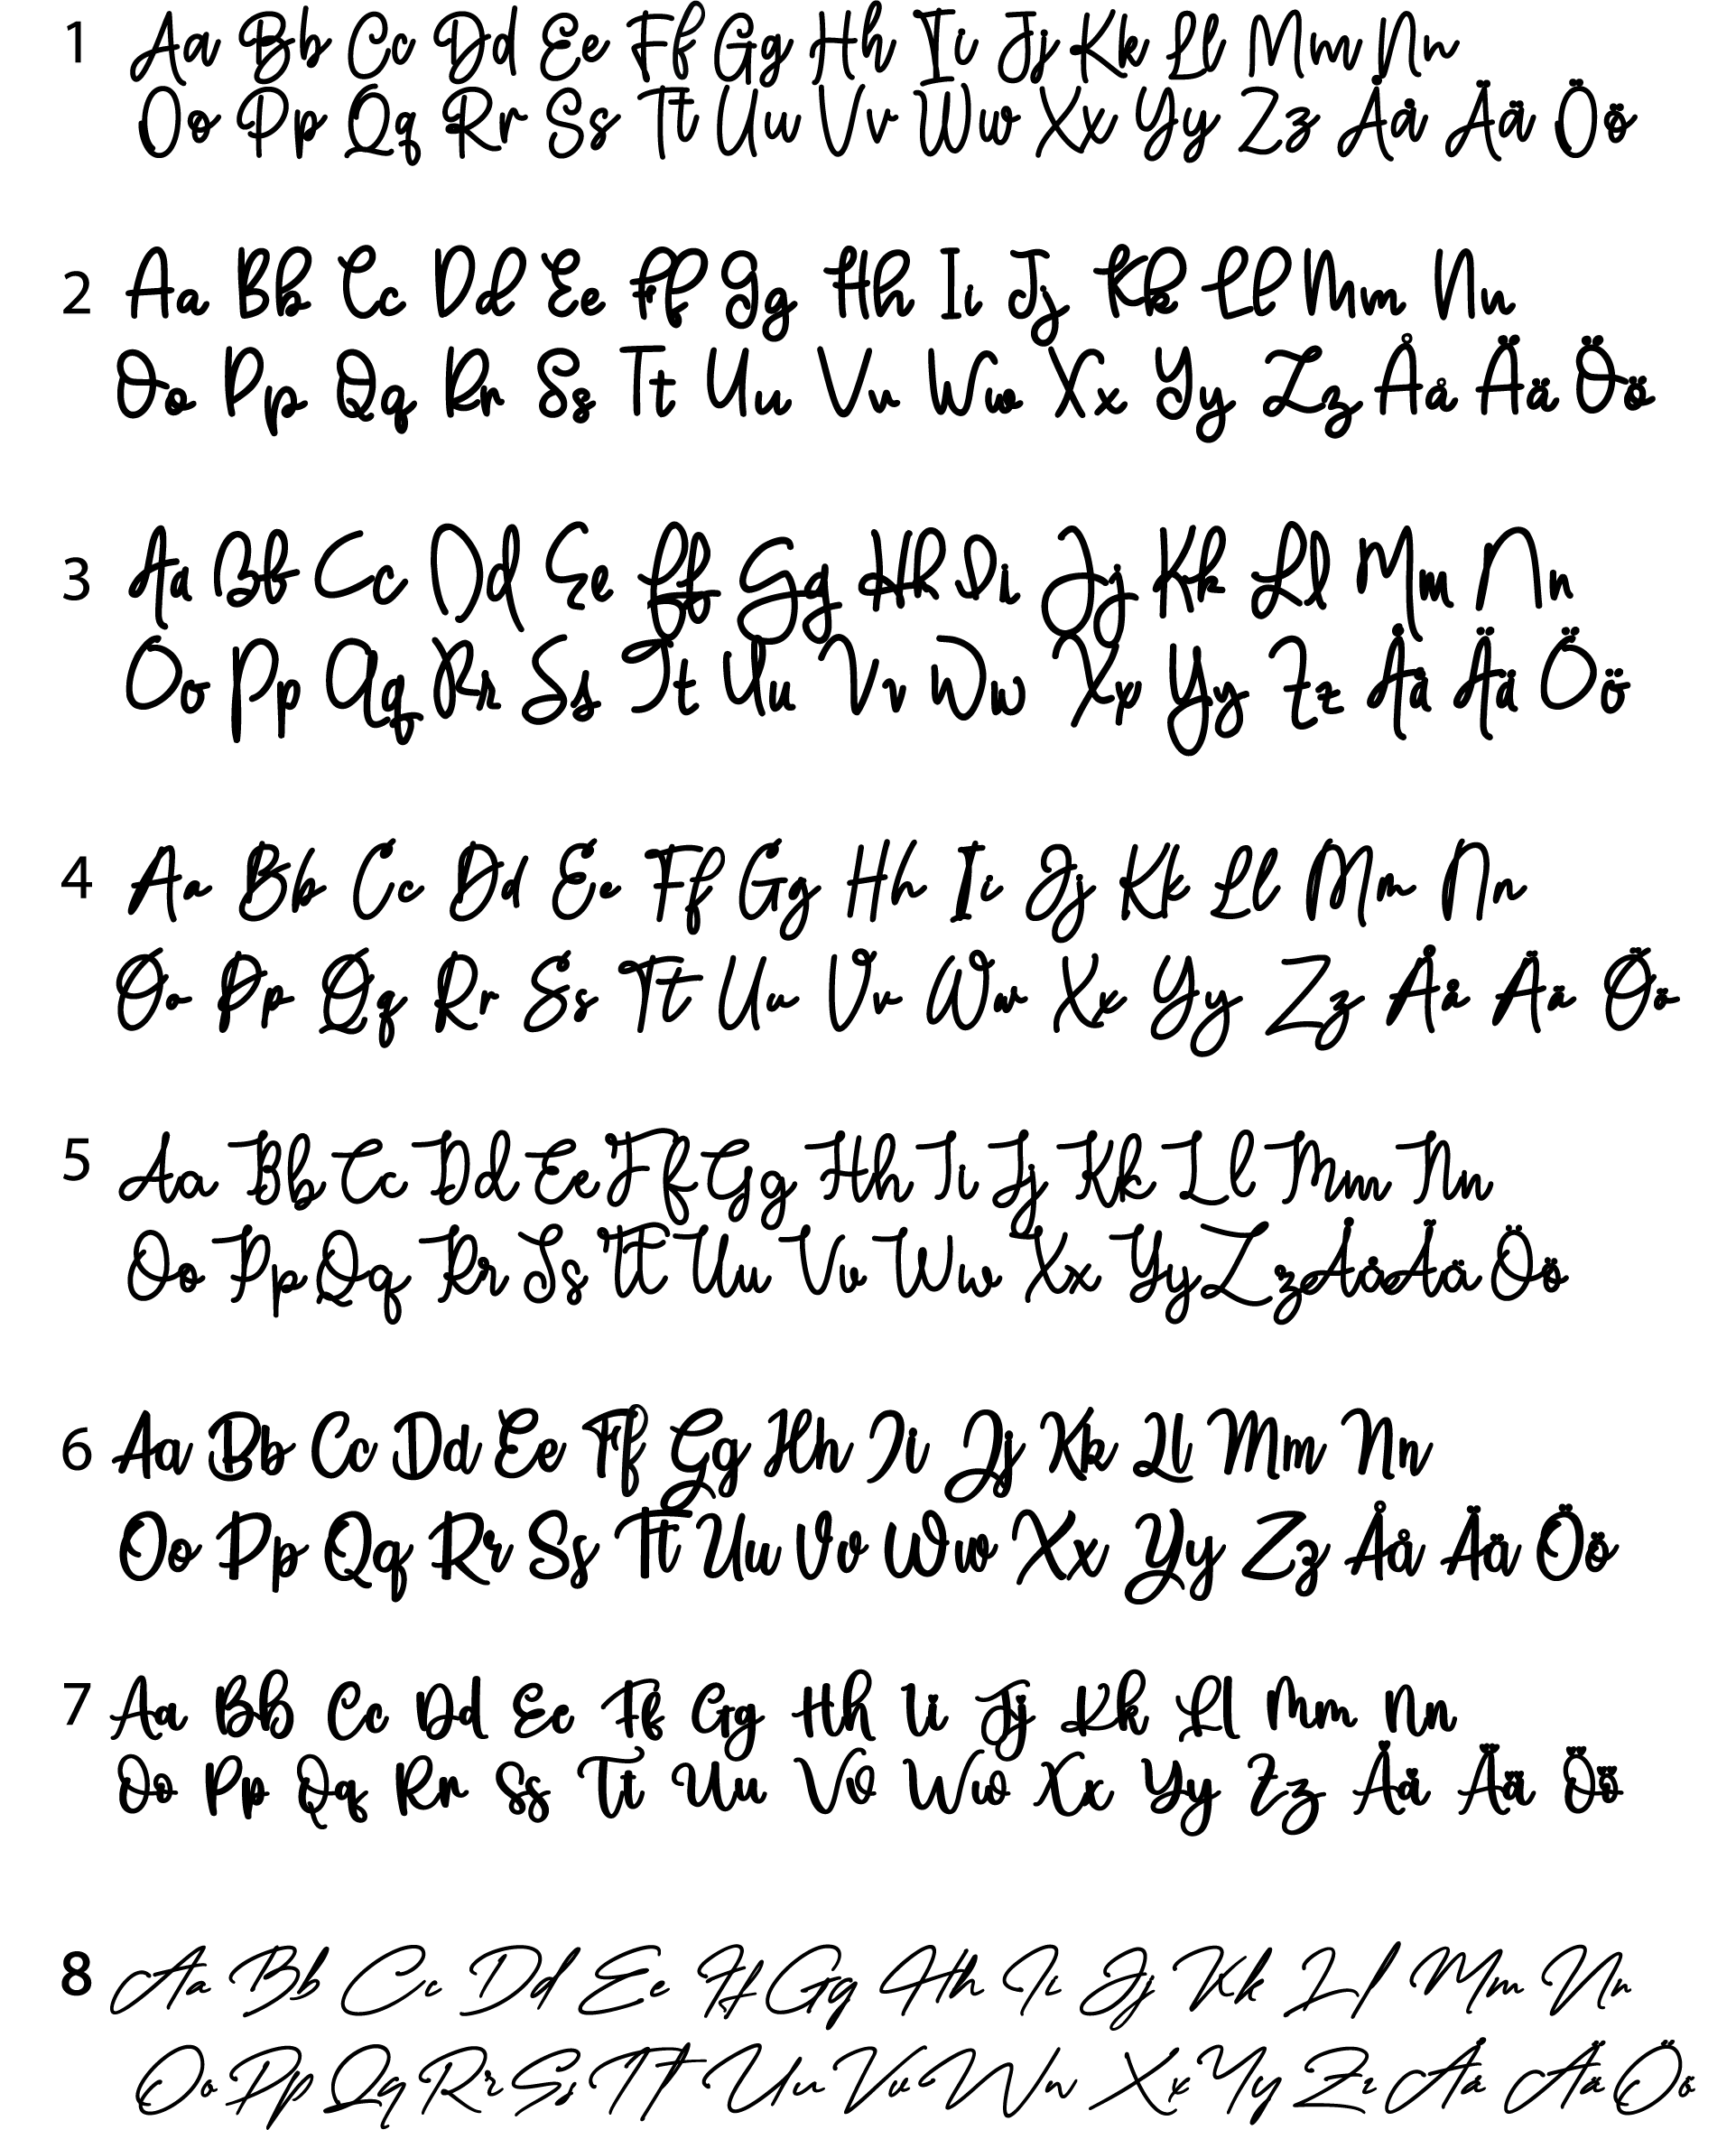 1 Aa Bb Cc Dd Ee Ff Gg Hh Ii Jj Kk Ll Mm Nn
Oo Pp Qq Rr Ss Tt Uu Vv Ww Xx Yy Zz Åå Ää Öö
2 Aa Bb Cc Dd Ee Ff Gg Hh Ii Jj Kk Ll Mm Nn
Oo Pp Qq Rr Ss Tt Uu Vv Ww Xx Yy Zz Åå Ää Öö
3 Aa Bb Cc Dd Ee Ff Gg Hh Ii Jj Kk Ll Mm Nn
Oo Pp Qq Rr Ss Tt Uu Vv Ww Xx Yy Zz Åå Ää Öö
4 Aa Bb Cc Dd Ee Ff Gg Hh Ii Jj Kk Ll Mm Nn
Oo Pp Qq Rr Ss Tt Uu Vv Ww Xx Yy Zz Åå Ää Öö
5 Aa Bb Cc Dd Ee Ff Gg Hh Ii Jj Kk Ll Mm Nn
Oo Pp Qq Rr Ss Tt Uu Vv Ww Xx Yy Zz Åå Ää Öö
6 Aa Bb Cc Dd Ee Ff Gg Hh Ii Jj Kk Ll Mm Nn
Oo Pp Qq Rr Ss Tt Uu Vv Ww Xx Yy Zz Åå Ää Öö
7 Aa Bb Cc Dd Ee Ff Gg Hh Ii Jj Kk Ll Mm Nn
Oo Pp Qq Rr Ss Tt Uu Vv Ww Xx Yy Zz Åå Ää Öö
8 Aa Bb Cc Dd Ee Ff Gg Hh Ii Jj Kk Ll Mm Nn
Oo Pp Qq Rr Ss Tt Uu Vv Ww Xx Yy Zz Åå Ää Öö